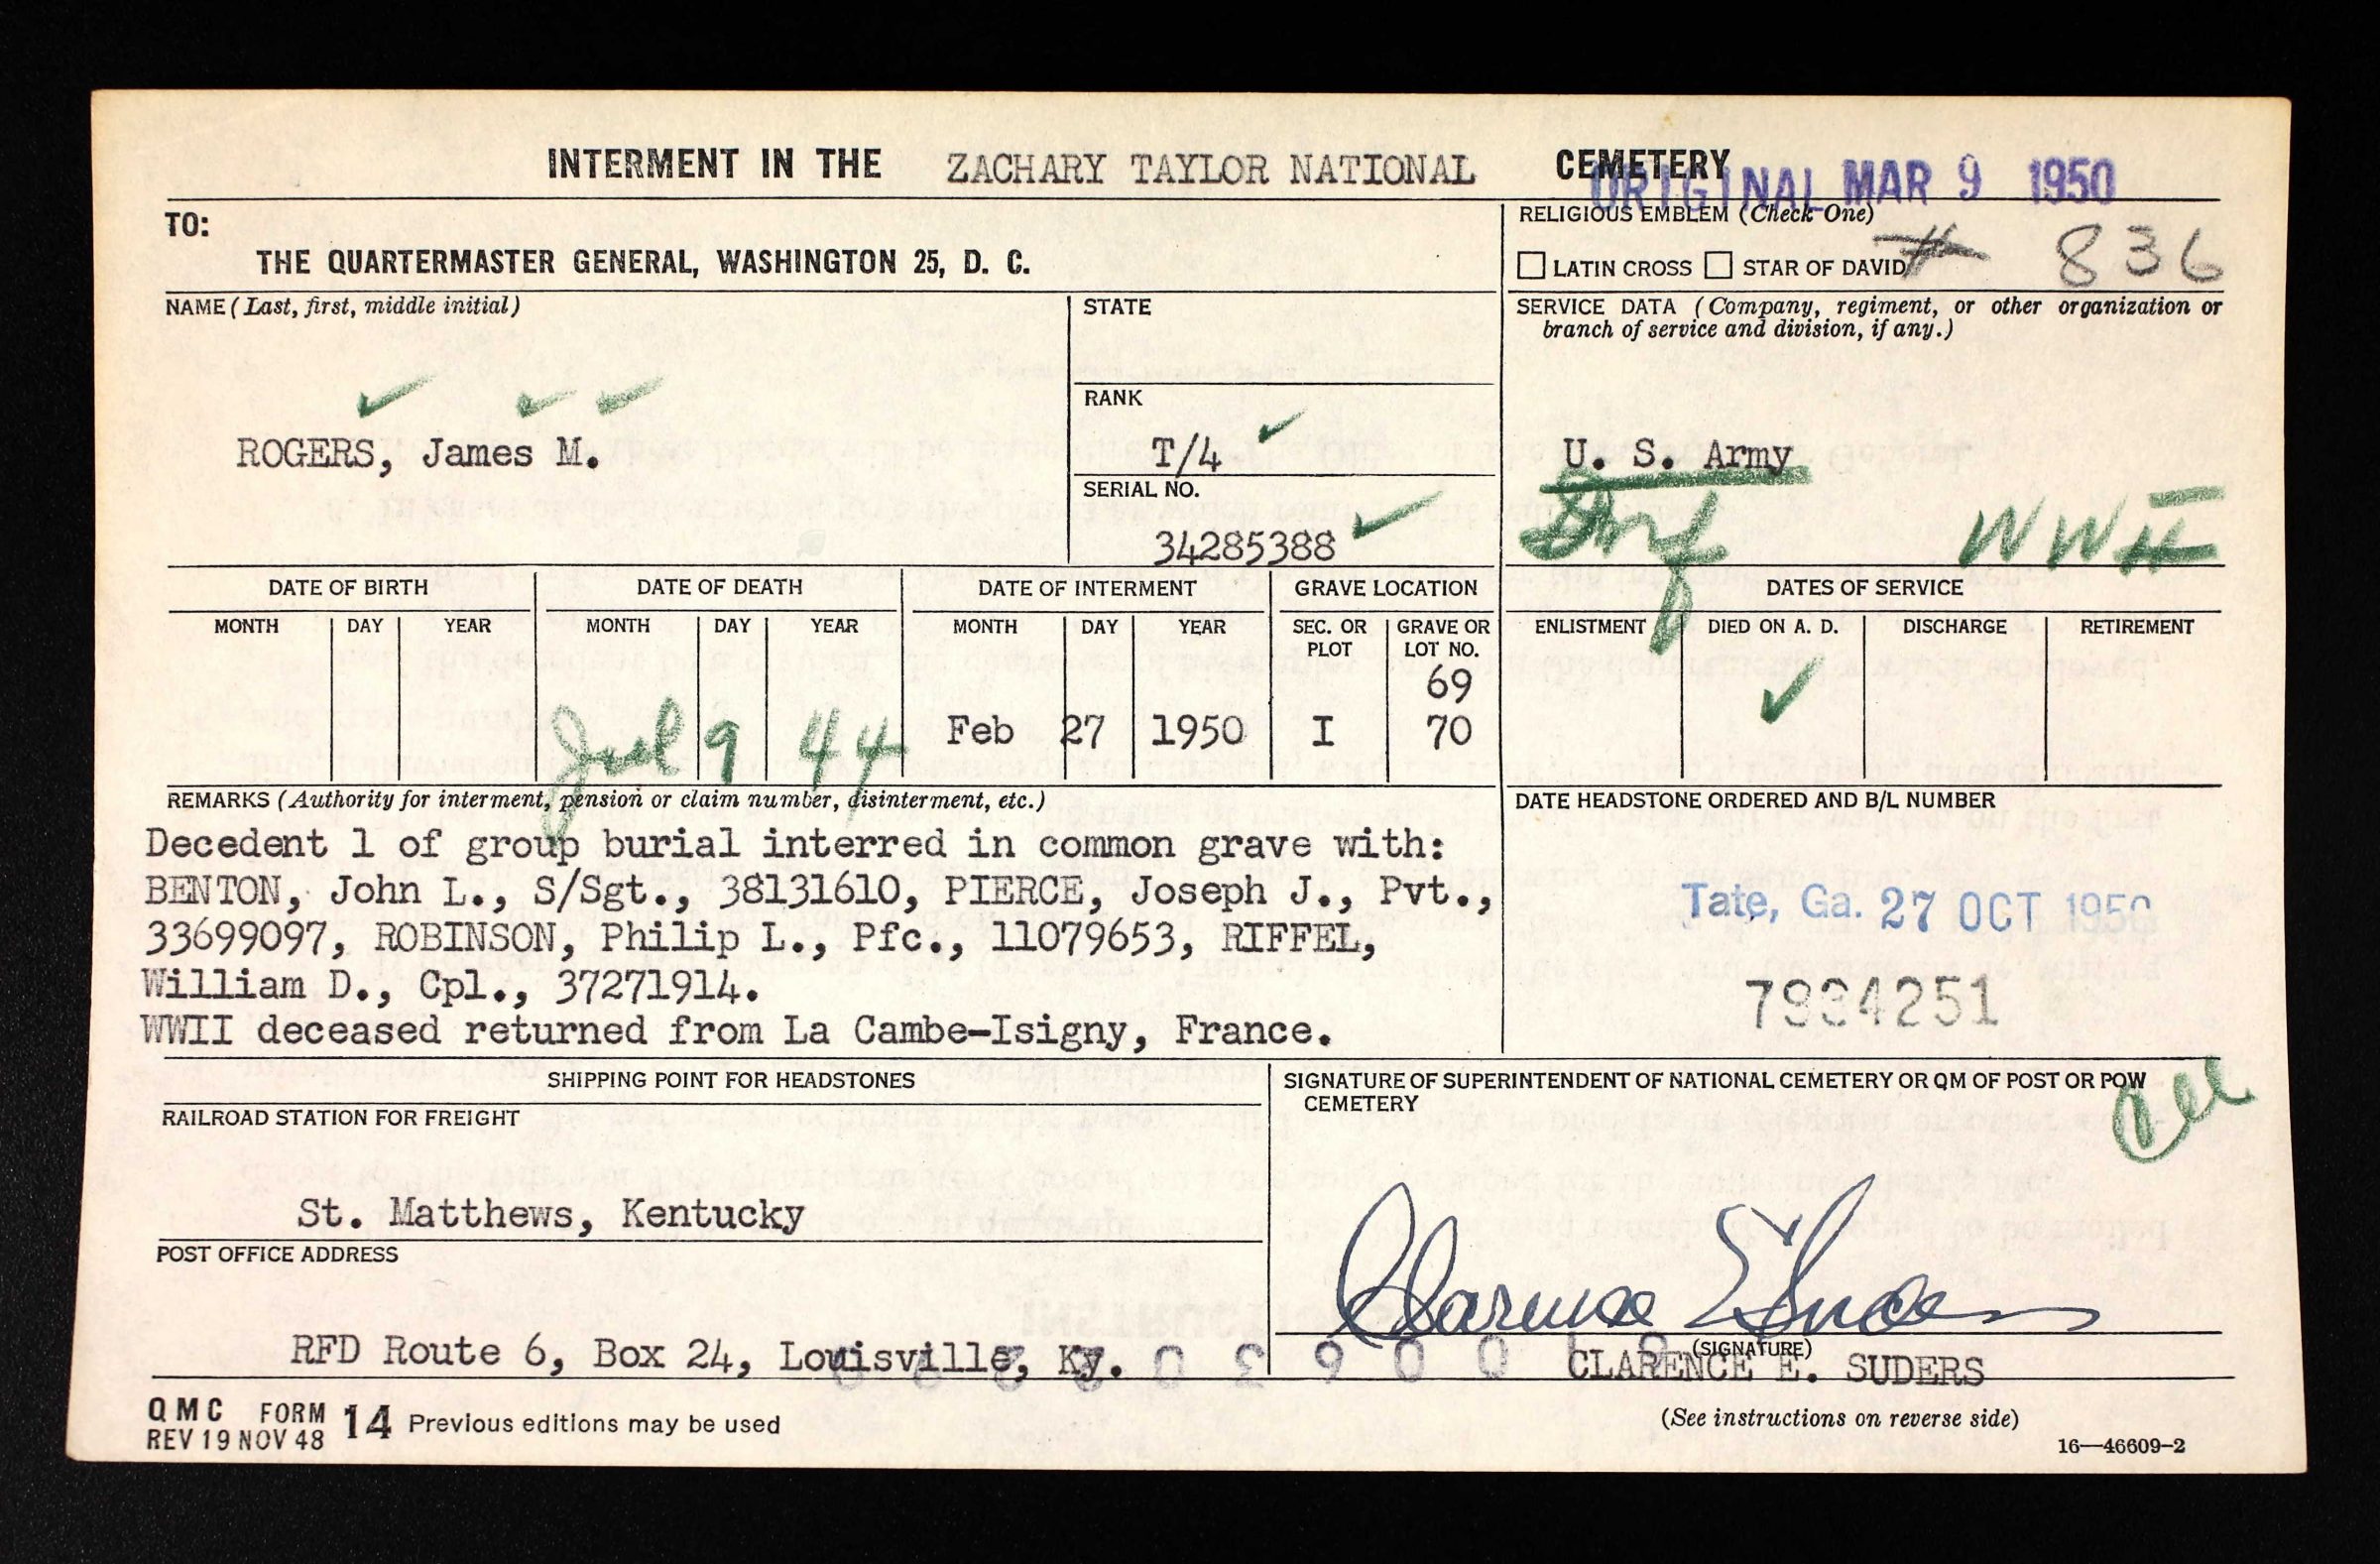 INTERMENT IN THE ZACHARY TAYLOR NATIONAL CEMETERY
ORIGINAL MAR 9 1950
TO:
THE QUARTERMASTER GENERAL, WASHINGTON 25, D. C.
RELIGIOUS EMBLEM (Check One)
LATIN CROSS STAR OF DAVID
836
NAME (Last, first, middle initial)
ROGERS, James M.
STATE
RANK
T/4
SERIAL NO.
34285388
SERVICE DATA (Company, regiment, or other organization or
branch of service and division, if any.)
U. S. Army
Inf WW II
DATE OF BIRTH DATE OF DEATH DATE OF INTERMENT GRAVE LOCATION DATES OF SERVICE
MONTH DAY YEAR MONTH DAY YEAR MONTH DAY YEAR SEC. OR PLOT GRAVE OR LOT NO. ENLISTMENT DIED ON A. D. DISCHARGE RETIREMENT
69
Jul 9 44 Feb 27 1950 I 70
REMARKS (Authority for interment, pension or claim number, disinterment, etc.)
Decedent 1 of group burial interred in common grave with:
BENTON, John L., S/Sgt., 38131610, PIERCE, Joseph J., Pvt.,
33699097, ROBINSON, Philip L., Pfc., 11079653, RIFFEL,
William D., Cpl., 37271914.
WWII deceased returned from La Cambe-Isigny, France.
DATE HEADSTONE ORDERED AND B/L NUMBER
Tate, Ga. 27 OCT 1950
SHIPPING POINT FOR HEADSTONES
RAILROAD STATION FOR FREIGHT
St. Matthews, Kentucky
POST OFFICE ADDRESS
RFD Route 6, Box 24, Louisville, Ky.
SIGNATURE OF SUPERINTENDENT OF NATIONAL CEMETERY OR QM OF POST OR POW
CEMETERY
Clarence E Suders
(SIGNATURE)
CLARENCE E. SUDERS
QMC FORM 14 Previous editions may be used
REV 19 NOV 48
(See instructions on reverse side)
16—46609-2